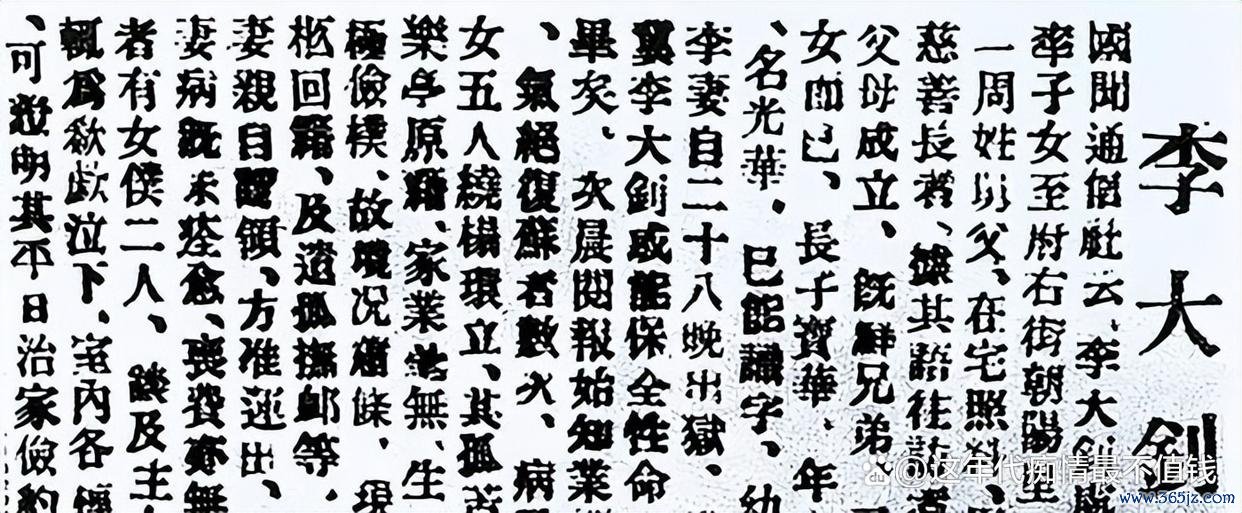 李大釗
國聞通信社云、李大釗
率子女至府右街朝陽里
一周姓以父、在宅照料、
慈善長者、據其語往訪者
父母成立、旣鮮兄弟、
女而已、長子寶華、年
、名光華、已能識字、幼
李妻自二十八晚出獄、
冀李大釗或能保全性命
畢矣、次晨閱報始知業
、氣絕復蘇者數次、病
女五人繞榻環立、其孤苦
樂亭原籍、家業毫無、生
極儉樸、故境况蕭條、現
柩回籍、及遺孤撫卹等
妻親自認領、方准運出、
妻病旣未痊愈、喪費亦無
者有女僕二人、談及主人
輒爲欷歔泣下、室內各
、可證明其平日治家儉約
@这年代痴情最不值钱
www.365jz.com